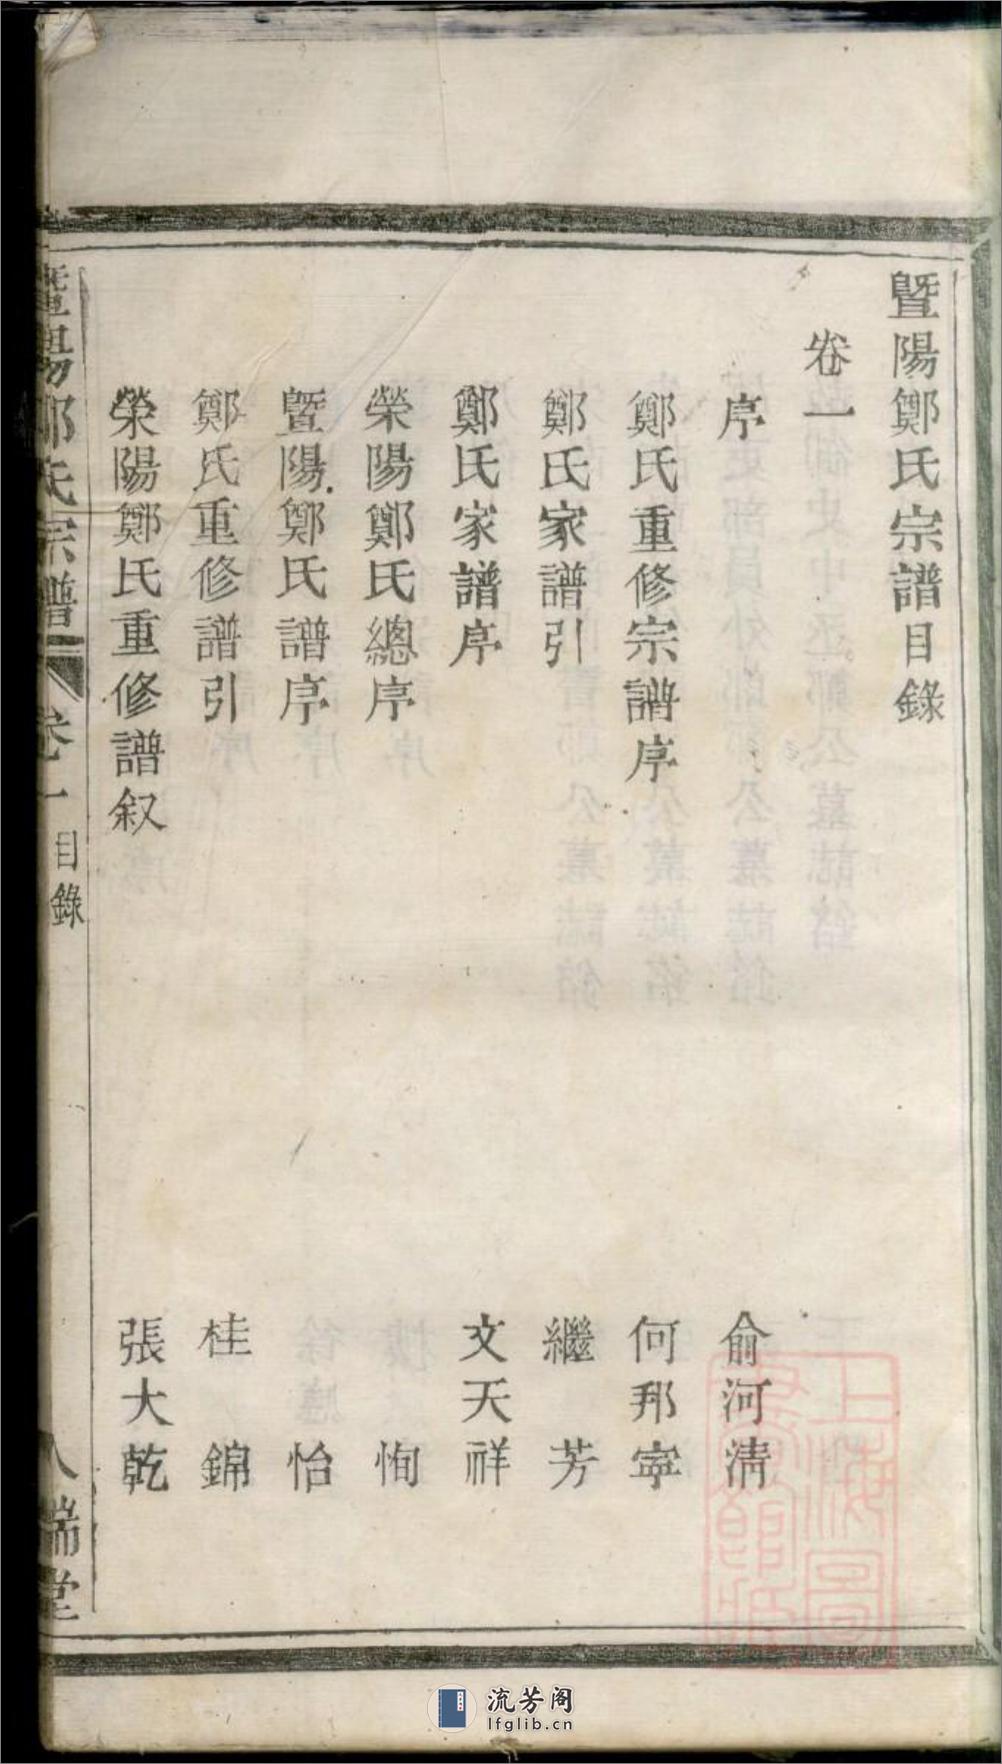 暨陽鄭氏宗譜目錄
卷一
序 俞河清
鄭氏重修宗譜序 何邦寧
鄭氏家譜引 繼芳
鄭氏家譜序 文天祥
滎陽鄭氏總序 恂
暨陽鄭氏譜序 怡
鄭氏重修譜引 桂錦
滎陽鄭氏重修譜叙 張大乾
暨陽鄭氏宗譜 卷一 目錄 八端堂
上海圖書館藏
流芳阁
lfglib.cn